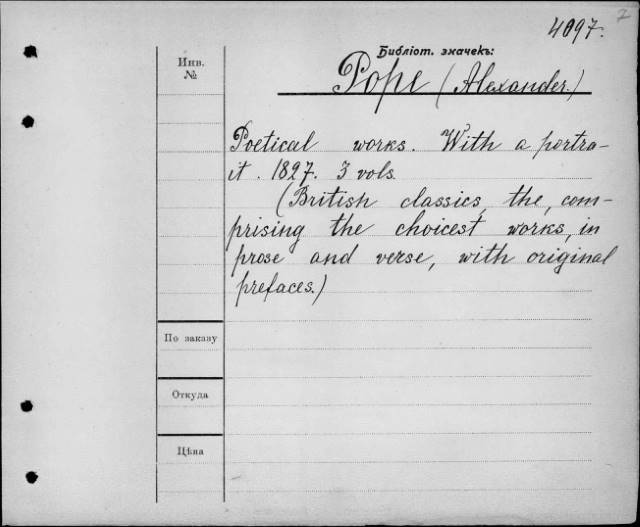 7
4097.
Библіот. значекъ:
Инв.
№
Pope (Alexander.)
Poetical works. With a portra-
it. 1827. 3 vols.
(British classics, the, com-
prising the choicest works, in
prose and verse, with original
prefaces.)
По заказу
Откуда
Цѣна